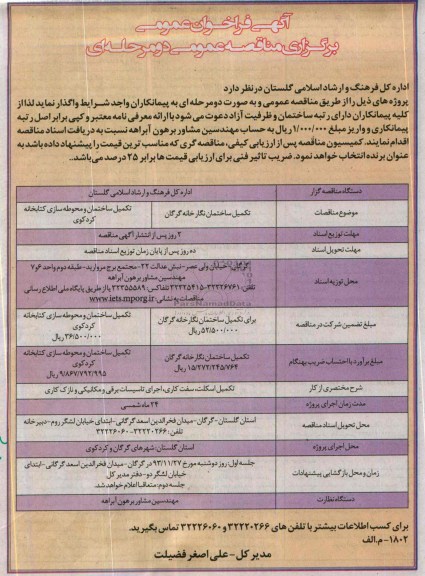 آگهی فراخوان عمومی
برگزاری مناقصه عمومی دو مرحله ای
اداره کل فرهنگ و ارشاد اسلامی گلستان در نظر دارد
پروژه های ذیل را از طریق مناقصه عمومی و به صورت دو مرحله ای به پیمانکاران واجد شرایط واگذار نماید لذا از
کلیه پیمانکاران دارای رتبه ساختمان و ظرفیت آزاد دعوت می شود با ارائه معرفی نامه معتبر و کپی برابر اصل رتبه
پیمانکاری و واریز مبلغ ۱/۰۰۰/۰۰۰ ریال به حساب مهندسین مشاور برهون آبراهه نسبت به دریافت اسناد مناقصه
اقدام نمایند. کمیسیون مناقصه پس از ارزیابی کیفی، مناقصه گری که مناسب ترین قیمت را پیشنهاد داده باشد به
عنوان برنده انتخاب خواهد نمود. ضریب تاثیر فنی برای ارزیابی قیمت ها برابر ۲۵ درصد می باشد.
دستگاه مناقصه گزار
اداره کل فرهنگ و ارشاد اسلامی گلستان
موضوع مناقصات
تکمیل ساختمان نگارخانه گرگان
تکمیل ساختمان و محوطه سازی کتابخانه
کردکوی
مهلت توزیع اسناد
۲ روز پس از انتشار آگهی مناقصه
مهلت تحویل اسناد
ده روز پس از پایان زمان توزیع اسناد مناقصه
محل توزیع اسناد
خیابان ولی عصر-نبش عدالت ۲۲-مجتمع برج مروارید-طبقه دوم واحد ۶و۷
مهندسین مشاور برهون آبراهه
تلفن: ۳۲۳۲۶۷۶۱-۳۲۳۲۵۴۱۵ تلفاکس: ۳۲۳۵۵۵۸۹ یا از طریق پایگاه ملی اطلاع رسانی
مناقصات به نشانی: www.iets.mporg.ir
مبلغ تضمین شرکت در مناقصه
برای تکمیل ساختمان نگارخانه گرگان
۵۲/۵۰۰/۰۰۰ ریال
تکمیل ساختمان و محوطه سازی کتابخانه
کردکوی
۳۶/۵۰۰/۰۰۰ ریال
مبلغ برآورد با احتساب ضریب بهنگام
تکمیل ساختمان نگارخانه گرگان
۱۵/۲۷۲/۲۴۵/۷۶۴ ریال
تکمیل ساختمان و محوطه سازی کتابخانه
کردکوی
۹/۸۶۷/۷۹۲/۹۹۵ ریال
شرح مختصری از کار
تکمیل اسکلت، سفت کاری، اجرای تاسیسات برقی و مکانیکی و نازک کاری
مدت زمان اجرای پروژه
۲۴ ماه شمسی
محل تحویل اسناد مناقصه
استان گلستان-گرگان-میدان فخرالدین اسعد گرگانی-ابتدای خیابان لشگر دوم-دبیرخانه
تلفن: ۳۲۲۲۰۲۶۶-۳۲۲۲۶۰۶۰
محل اجرای پروژه
استان گلستان: شهرهای گرگان و کردکوی
زمان و محل بازگشایی پیشنهادات
جلسه اول: روز دوشنبه مورخ ۹۳/۱۱/۲۷ در گرگان-میدان فخرالدین اسعد گرگانی-ابتدای
خیابان لشگر دو-دفتر مدیر کل
جلسه دوم: متعاقبا اعلام خواهد شد.
دستگاه نظارت
مهندسین مشاور برهون آبراهه
برای کسب اطلاعات بیشتر با تلفن های ۳۲۲۲۰۲۶۶ و ۳۲۲۲۶۰۶۰ تماس بگیرید.
۱۸۰۲-م.الف
مدیر کل-علی اصغر فضیلت